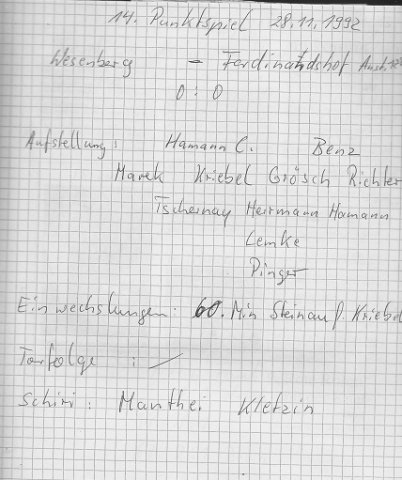 14. Punktspiel 28.11.1992
Wesenberg - Ferdinandshof
0 : 0
Aufstellung: Hamann C. Benz
Marek Kriebel Grösch Richter
Tschernay Herrmann Hamann
Lemke
Pinger
Einwechslungen: 60. Min Steinau f. Kriebel
Torfolge : /
Schiri: Manthei Kletzin